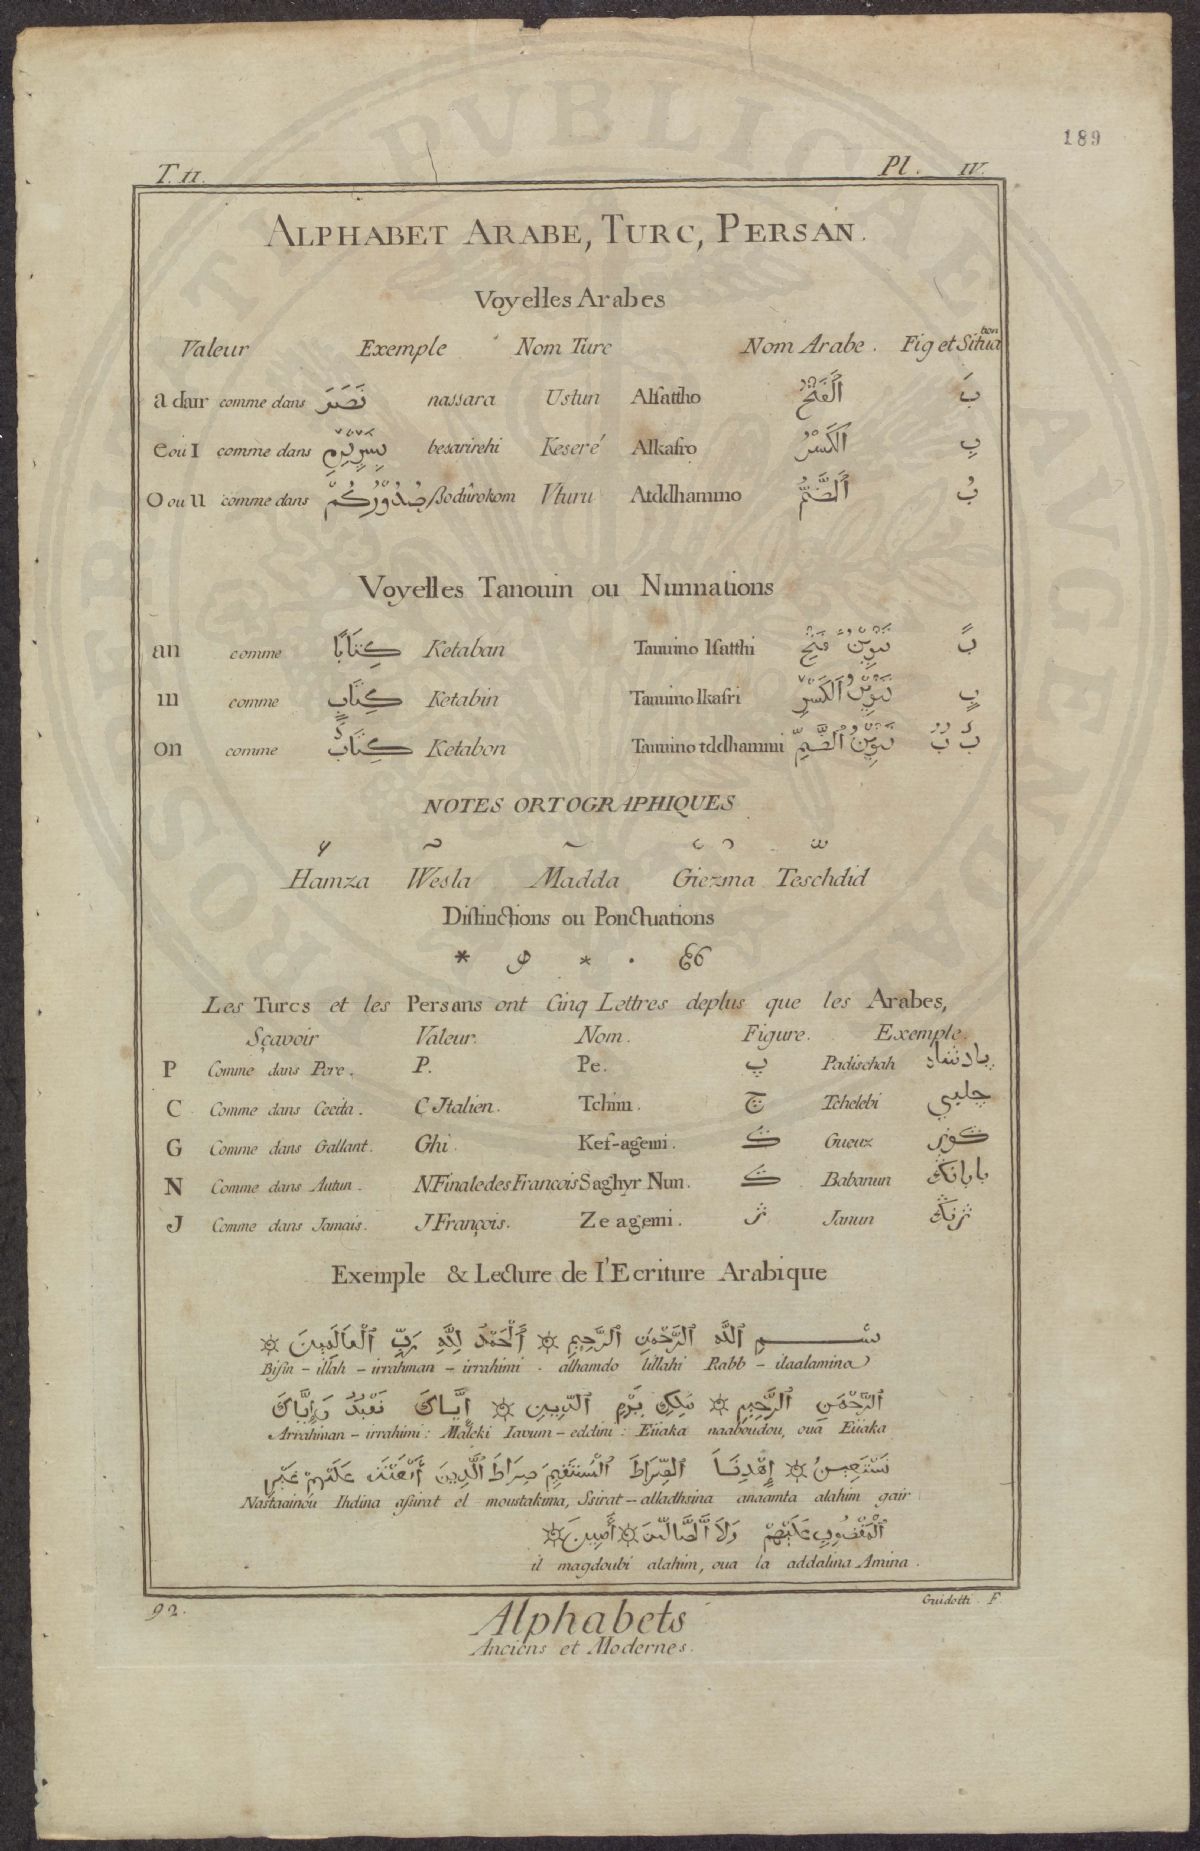 189
T. II. Pl. IV.
ALPHABET ARABE, TURC, PERSAN.
Voyelles Arabes
Valeur Exemple Nom Turc Nom Arabe. Fig et Situation
a clair comme dans نَصَرَ nassara Ustun Alfattho اَلْفَتْحُ بَ
e ou I comme dans besarirehi Keseré Alkasro اَلْكَسْرُ بِ
O ou u comme dans صُدُوْرُكُمْ ßodûrokom Vturu Atddhammo اَلضَّمُّ بُ
Voyelles Tanouin ou Nunnations
an comme كِتَابًا Ketaban Tanuino lfatthi تَنْوِيْنُ فَتْحِ بً
in comme كِتَابٍ Ketabin Tanuino lkasri تَنْوِيْنُ الْكَسْرِ بٍ
on comme كِتَابٌ Ketabon Tanuino tddhammi تَنْوِيْنُ الضَّمِّ بٌ بٌ
NOTES ORTOGRAPHIQUES
Hamza Wesla Madda Giezma Teschdid
Distinctions ou Ponctuations
Les Turcs et les Persans ont Cinq Lettres deplus que les Arabes,
Sçavoir Valeur. Nom. Figure. Exemple.
P Comme dans Pere. P. Pe. پ Padischah پادشاه
C Comme dans Cecita. C Italien. Tchim. چ Tchelebi چلبي
G Comme dans Gallant. Ghi. Kef-agemi. Gueuz
N Comme dans Autun. N Finale des Francois Saghyr Nun. Babanun بابانڭ
J Comme dans Jamais. J François. Ze agemi. ژ Janun ژنڭ
Exemple & Lecture de l'Ecriture Arabique
بسم الله الرَّحْمٰنِ الرَّحِيمِ ۞ اَلْحَمْدُ لِلّٰهِ رَبِّ الْعَالَمِينَ ۞
Bissin - illah - irrahman - irrahimi. alhamdo lillahi Rabb - ilaalamina
الرَّحْمٰنِ الرَّحِيمِ ۞ مَلِكِ يَوْمِ الدِّينِ ۞ إِيَّاكَ نَعْبُدُ وَإِيَّاكَ
Arrahman - irrahimi: Maleki Iavum - eddini: Eiiaka naaboudou, oua Eiiaka
نَسْتَعِينُ ۞ إِهْدِنَا الصِّرَاطَ الْمُسْتَقِيمَ صِرَاطَ الَّذِينَ أَنْعَمْتَ عَلَيْهِمْ غَيْرِ
Nastaainou Ihdina assirat el moustakima, Ssirat - alladhsina anaamta alahim gair
الْمَغْضُوبِ عَلَيْهِمْ وَلَا الضَّالِّينَ ۞ أَمِينَ ۞
il magdoubi alahim, oua la addalina Amina.
92. Guidotti F.
Alphabets
Anciens et Modernes.